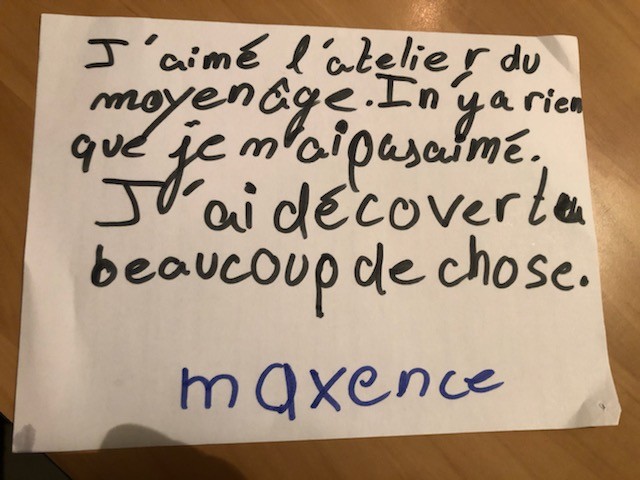 J'aimé l'atelier du
moyenâge. In'y a rien
que je m'ai pas aimé.
J'ai décovert
beaucoup de chose.
maxence